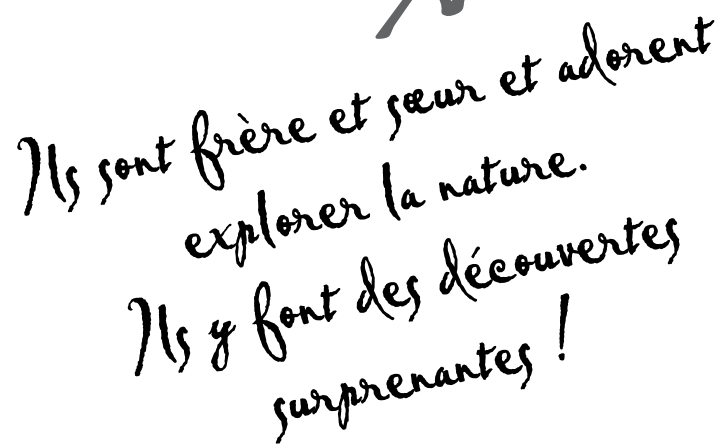 Ils sont frère et sœur et adorent
explorer la nature.
Ils y font des découvertes
surprenantes !